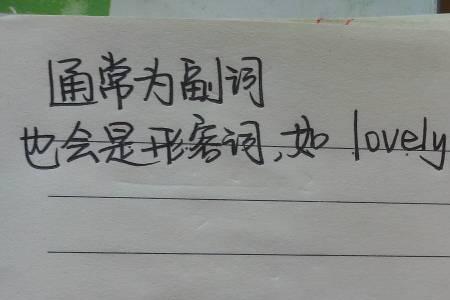 通常为副词
也会是形容词,如 lovely